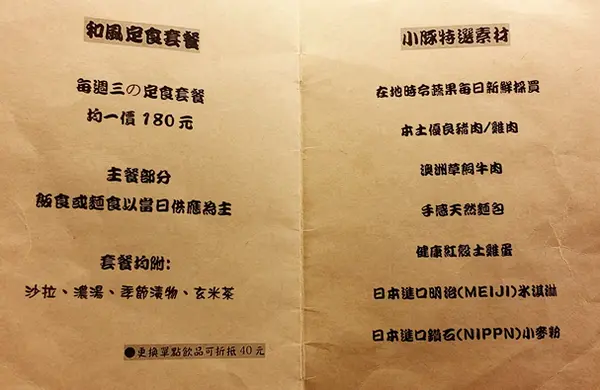 和風定食套餐
每週三の定食套餐
均一價180元
主餐部分
飯食或麵食以當日供應為主
套餐均附:
沙拉、濃湯、季節漬物、玄米茶
●更換單點飲品可折抵40元
小豚特選素材
在地時令蔬果每日新鮮採買
本土優良豬肉/雞肉
澳洲草飼牛肉
手感天然麵包
健康紅殼土雞蛋
日本進口明治(MEIJI)氷淇淋
日本進口鑽石(NIPPN)小麥粉